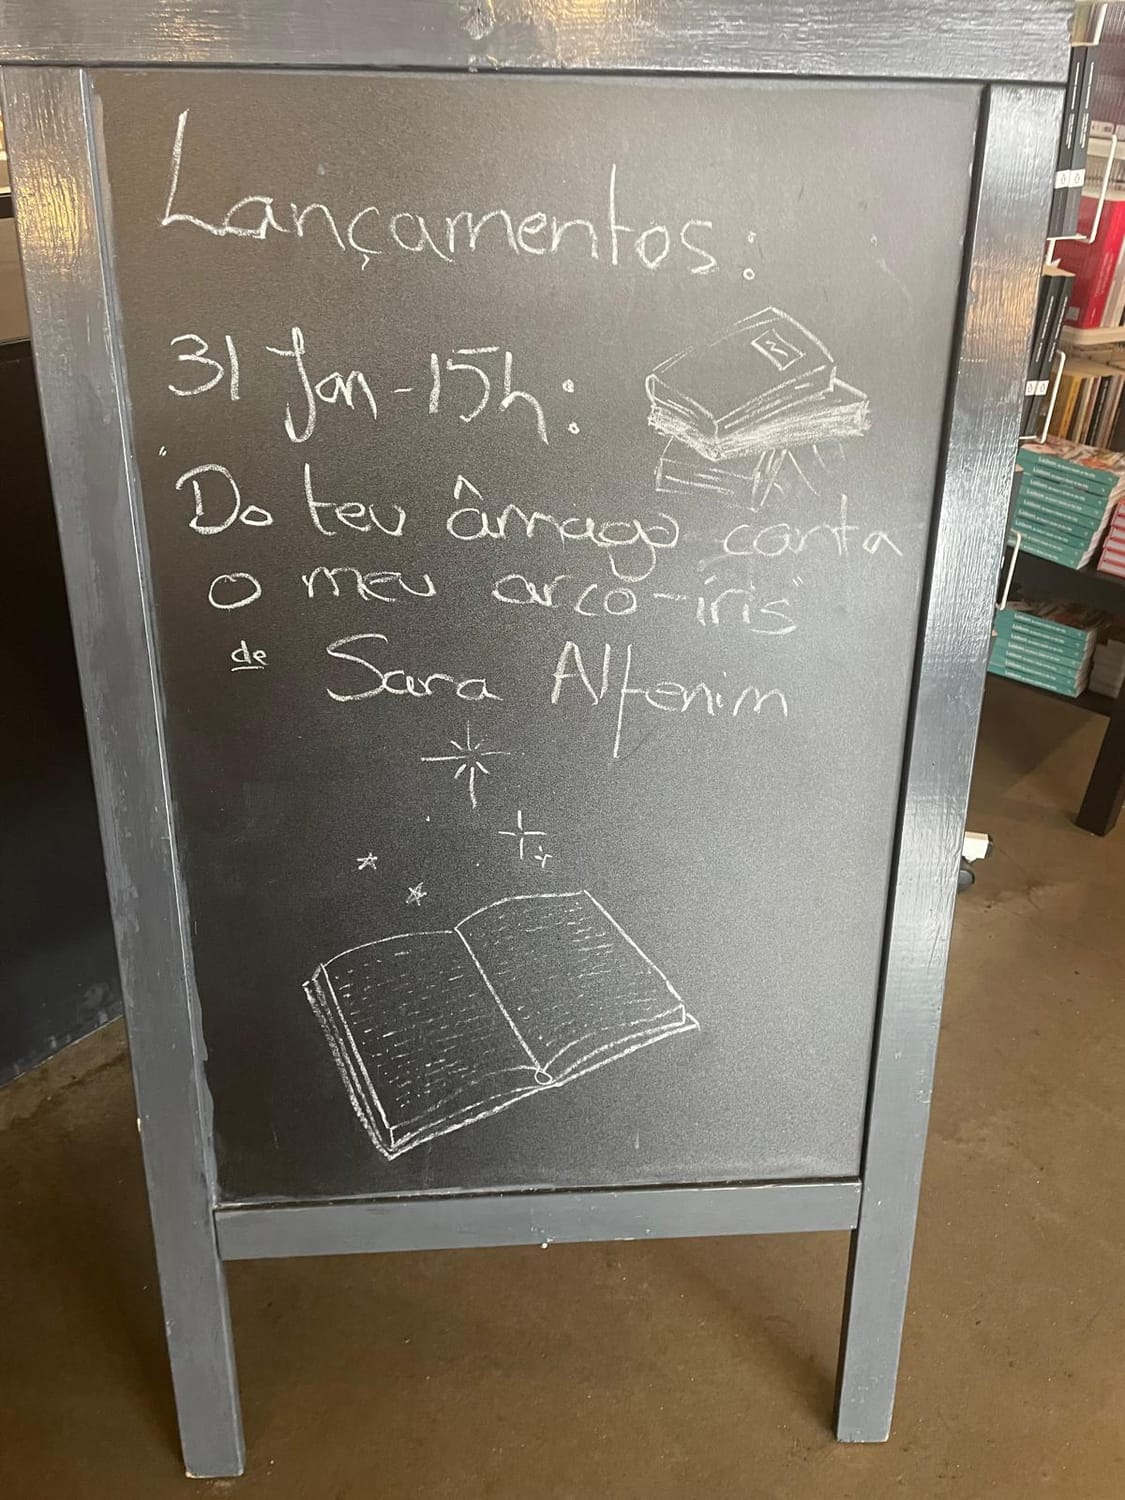 Lançamentos:
31 Jan - 15h:
"Do teu âmago canta
o meu arco-íris"
de Sara Alfenim